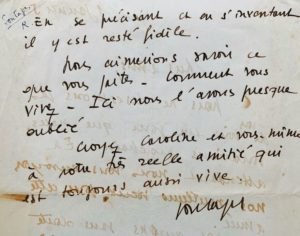 Soulages
R. En se précisant et en s'inventant
il y est resté fidèle.
Nous aimerions savoir ce
que vous faites - comment vous
vivez Ici nous l'avons presque
oublié
Croyez Caroline et vous-même
à notre très réelle amitié qui
est toujours aussi vive
Soulages